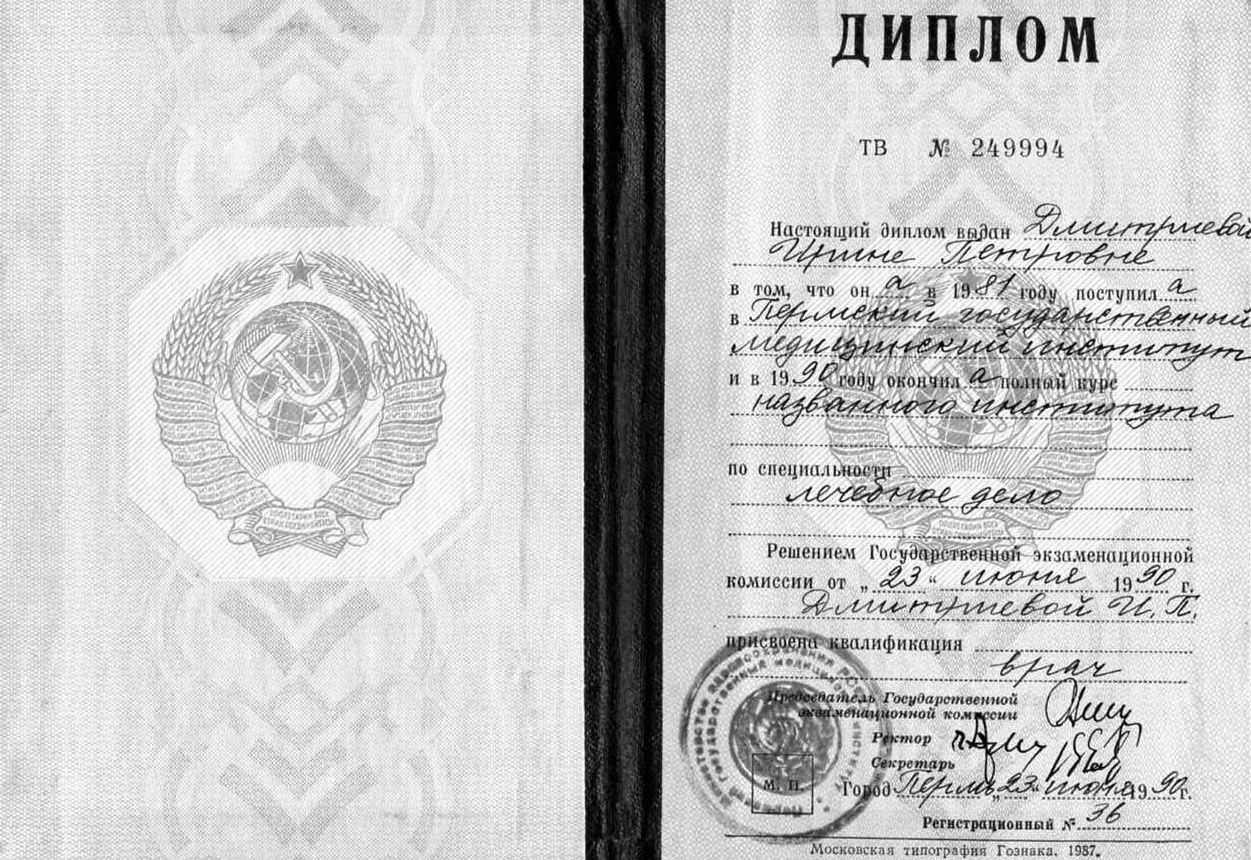 ПРОЛЕТАРИИ ВСЕХ
СТРАН, СОЕДИНЯЙТЕСЬ!
ДИПЛОМ
ТВ № 249994
Настоящий диплом выдан Дмитриевой
Ирине Петровне
в том, что он а в 1981 году поступил а
в Пермский государственный
медицинский институт
и в 1990 году окончил а полный курс
названного института
по специальности
лечебное дело
Решением Государственной экзаменационной
комиссии от „23“ июня 1990 г.
Дмитриевой И. П.
присвоена квалификация
врач
Председатель Государственной
экзаменационной комиссии
Ректор
Секретарь
М. П.
Город Пермь „23“ июня 1990 г.
Регистрационный № 36
Московская типография Гознака. 1987.